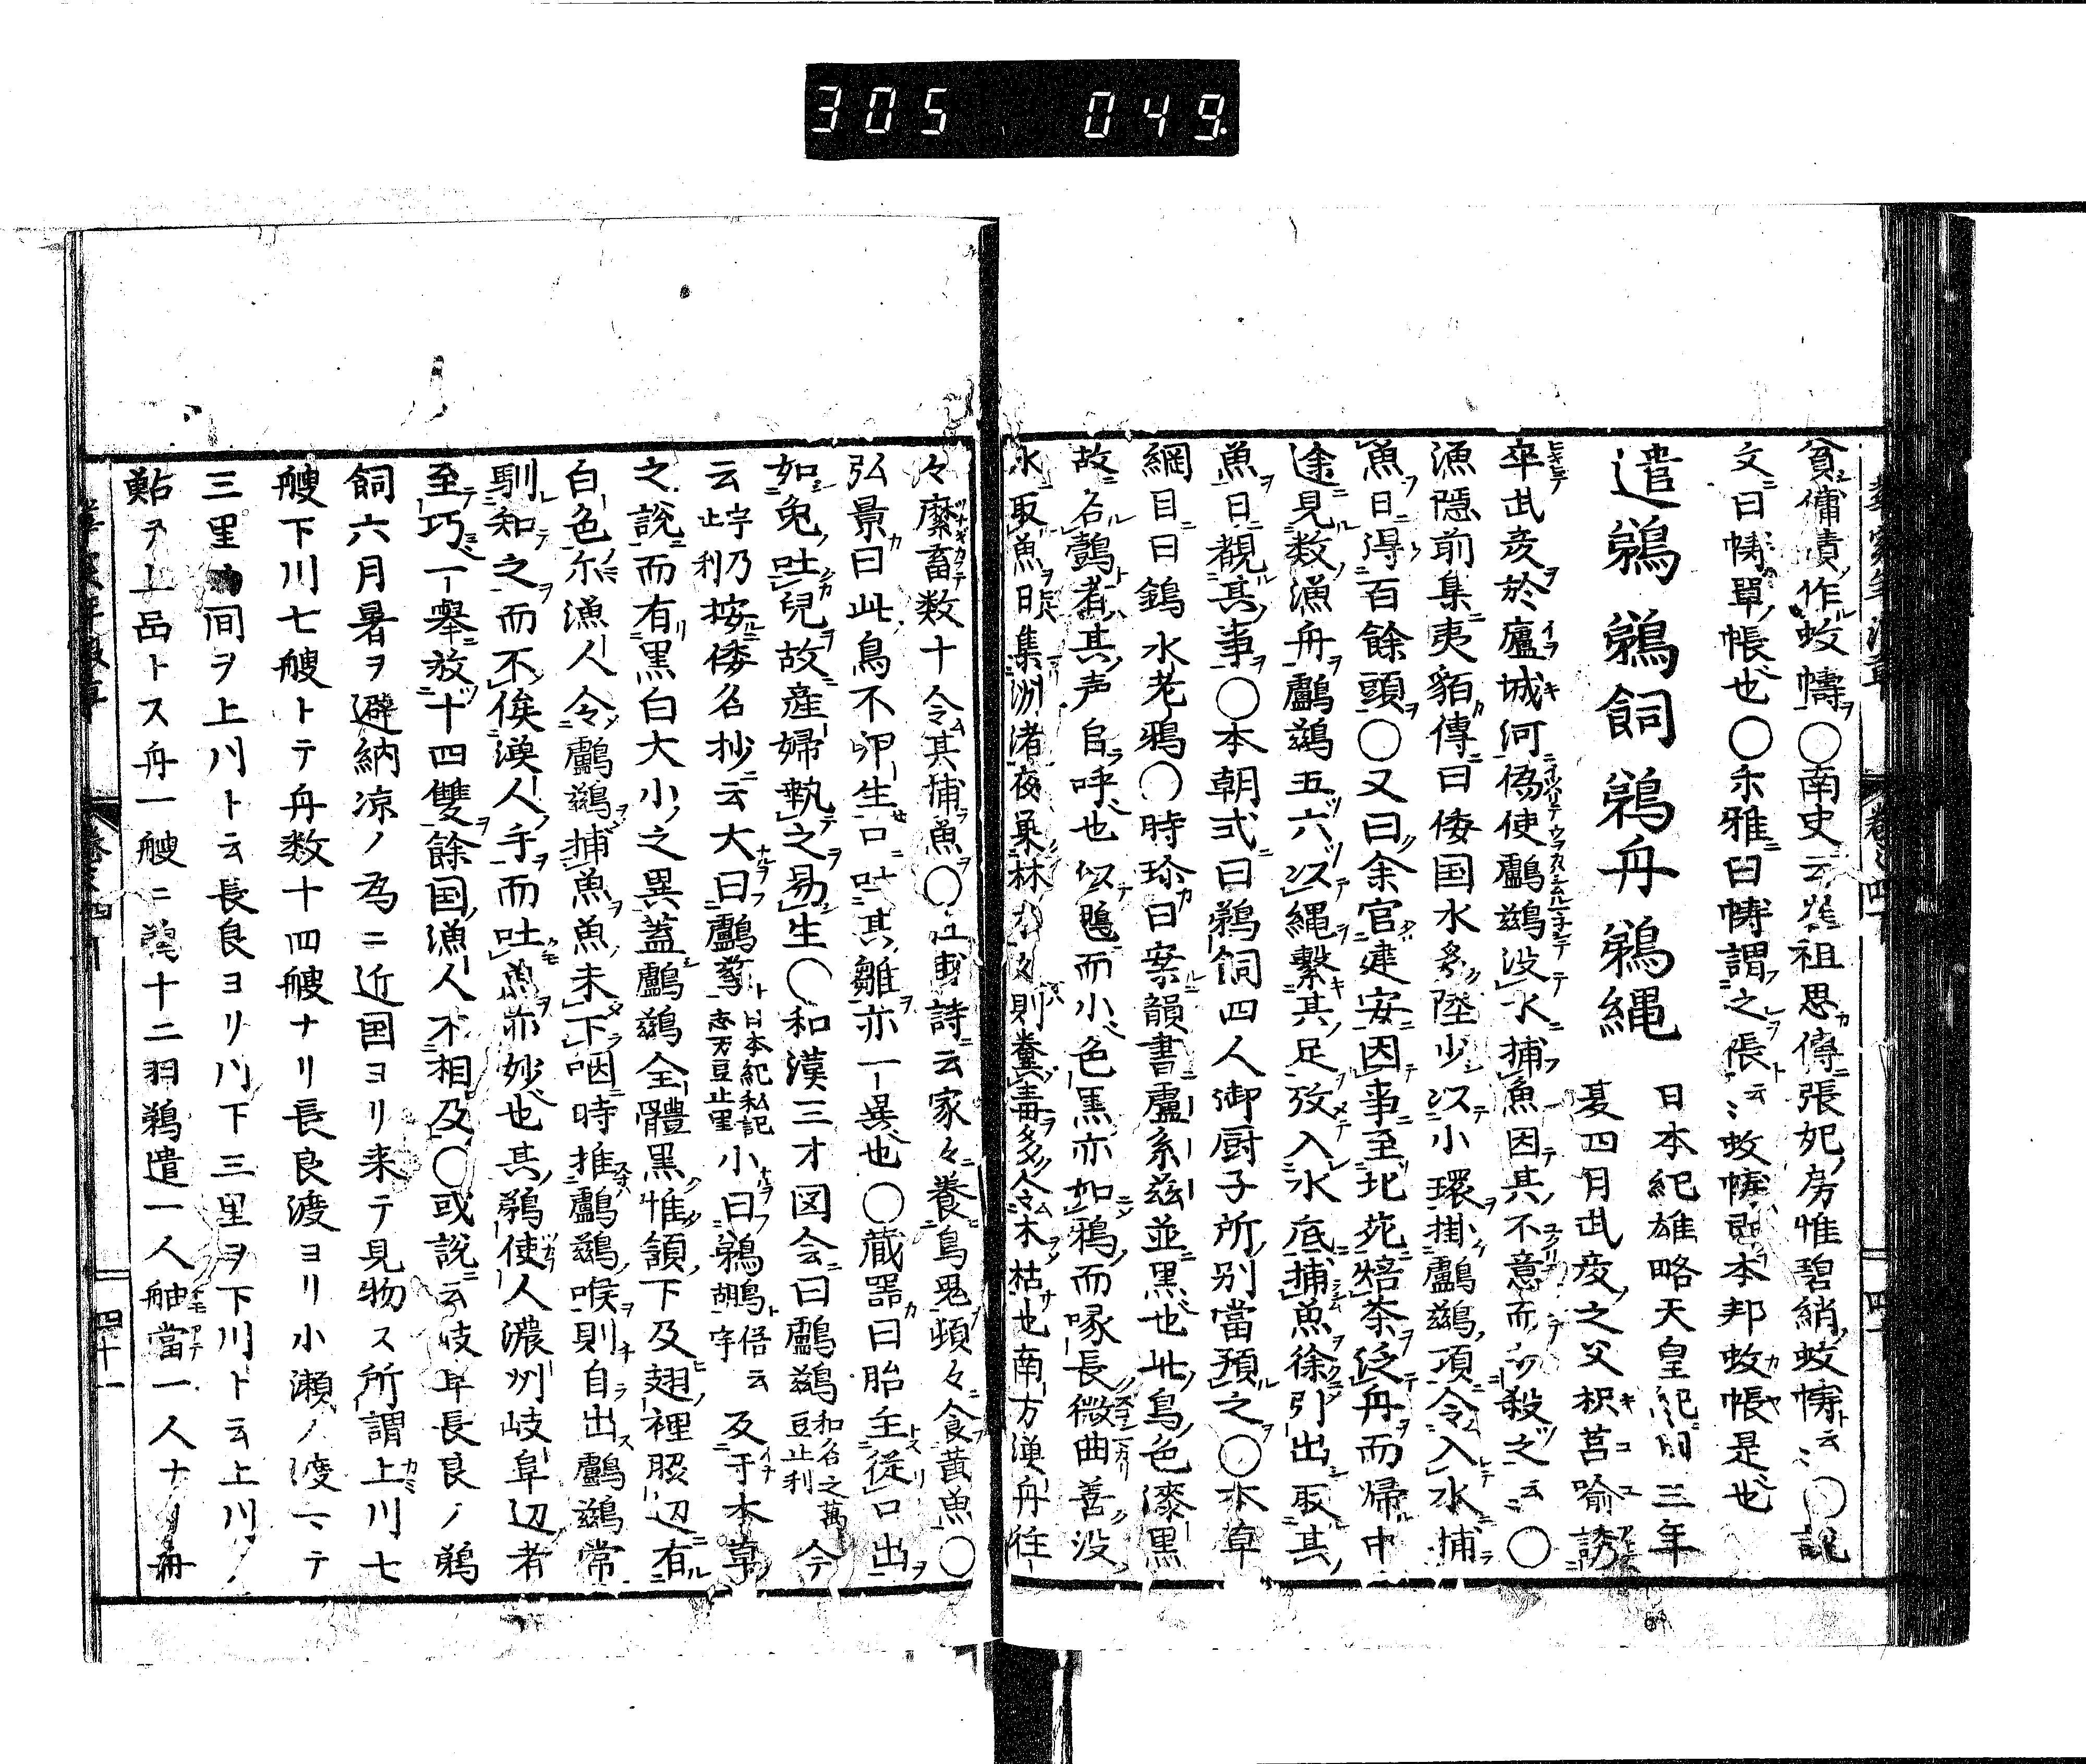 305 049
貧傭債作蚊幬〇南史云 祖思傳ニ張妃房惟碧綃蚊幬ト云ミ〇説
文ニ曰幬單帳也〇尓雅ニ曰幬謂之帳ト云ミ蚊幬即本邦蚊帳是也
遣鵜 鵜飼 鵜舟 鵜縄
日本紀雄略天皇紀ニ曰三年
夏四月武彦之父枳莒喩誘
卒武彦於廬城河ニ偽使鸕鷀没水捕魚因其不意而 殺之云ミ〇
漁隠前集夷貊傳ニ曰倭国水多陸少以小環掛鸕鷀項令入水捕
魚日得百餘頭〇又曰余官建安因事至北苑焙茶泛舟而帰中
途見数漁舟鸕鷀五六以縄繋其足放入水底捕魚徐引出取其
魚日観其事〇本朝式ニ曰鵜飼四人御厨子所別當預之〇本草
網目ニ曰鷧水老鴉〇時珍曰案韻書盧系玆並黒也此鳥色漆黒
故名鷧者其声自呼也似鶂而小色黒亦如鴉而喙長微曲善没
水取魚日集洲渚夜巣林木 則糞毒多令木枯也南方漁舟往
々縻畜数十令其捕魚〇杜甫詩ニ云家々養烏鬼頓々食黄魚〇
弘景曰此鳥不卵生口吐其雛亦一異也〇蔵噐曰胎生従口出
如兔吐兒故産婦執之易生〇和漢三才図会ニ曰鸕鷀和名之萬豆止利今
云宇止利乃按倭名抄ニ云大曰鸕 日本紀私記志万豆止里小曰鵜鶘俗云宇及于本草
之説而有黒白大小之異蓋鸕鷀全體黒惟頷下及翅裡脇辺有
白色尓漁人令鸕鷀捕魚魚未下咽時推鸕鷀喉則自出鸕鷀常
馴知之而不俟漢人手而吐魚亦妙也其鵜使人濃州岐阜辺者
至巧一挙放十四雙餘国漁人不相及〇或説云岐阜長良ノ鵜
飼六月暑ヲ避納凉ノ為ニ近国ヨリ来テ見物ス所謂上川七
艘下川七艘トテ舟数十四艘ナリ長良渡ヨリ小瀬ノ渡マテ
三里ノ間ヲ上川ト云長良ヨリ川下三里ヲ下川ト云上川ノ
鮎ヲ上品トス舟一艘ニ鵜十二羽鵜遣一人舳當一人ナリ舟
四十一